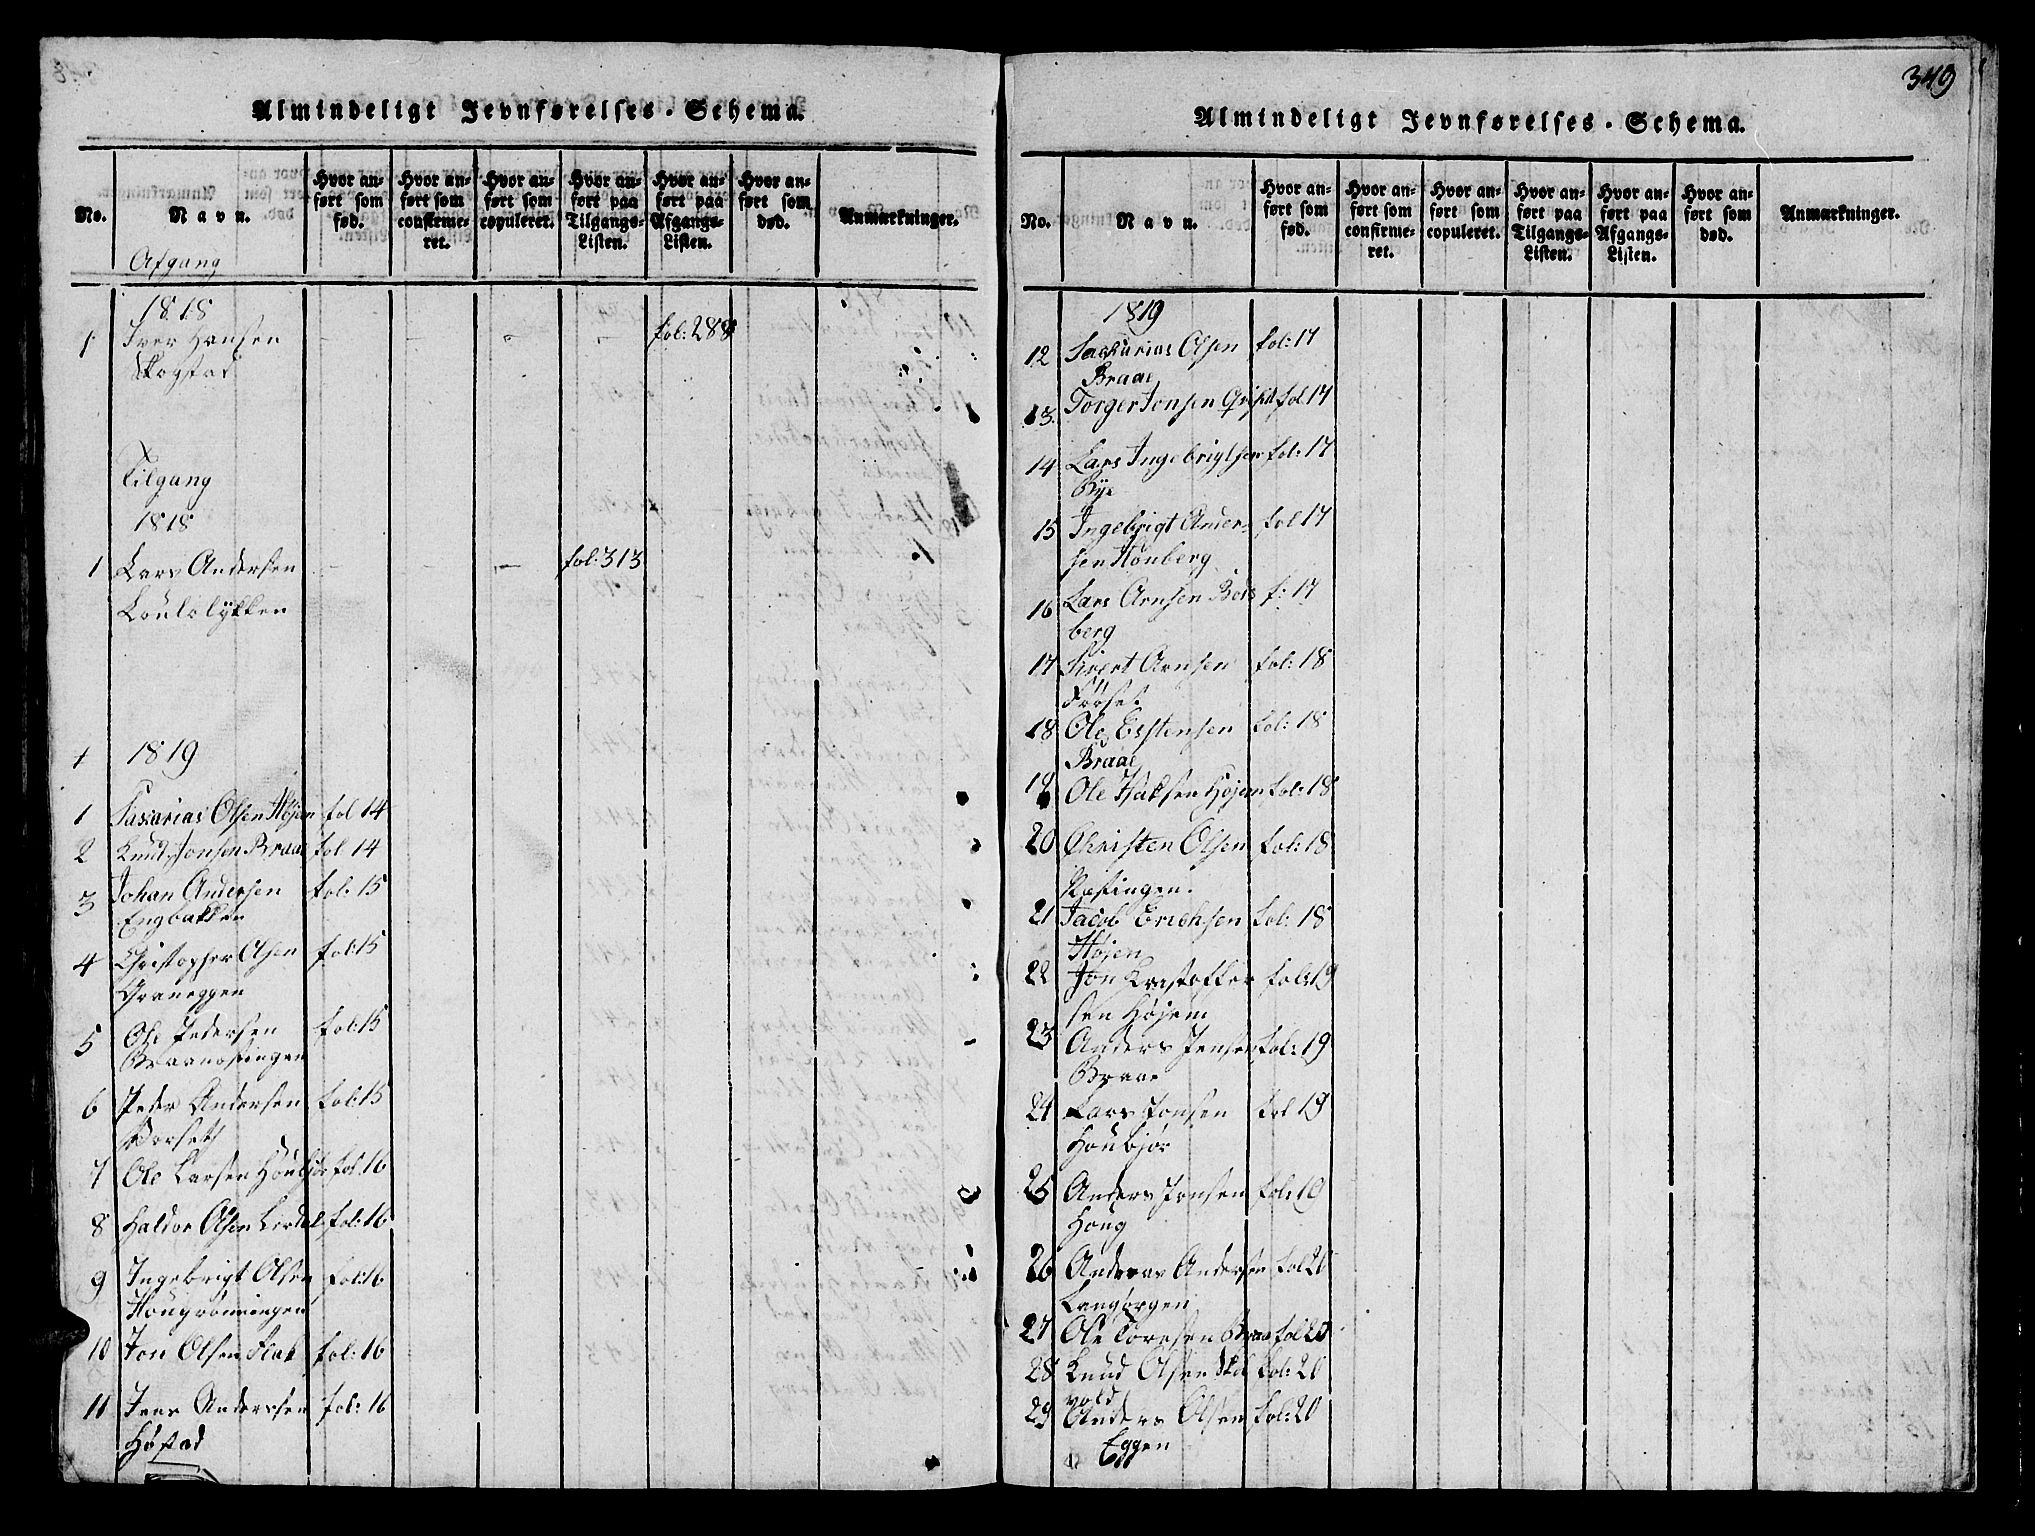 Almindeligt Jevnførelses-Schema.
No. Navn. Hvor anført som fød. Hvor anført som confirmeret. Hvor anført som copuleret. Hvor anført paa Tilgangs-Listen. Hvor anført paa Afgangs-Listen. Hvor anført som død. Anmærkninger.
Afgang
1818
1 Iver Hansen - - - - fol: 288
Skogstad
Tilgang
1818
1 Lars Andersen - - - fol: 313
1819
1 Olsen Höjem fol 14
2 Knud Jonsen Braae fol 14
3 Johan Andersen fol: 15
Engbakken
4 Christopher Olsen fol: 15
Graneggen
5 Ole Pedersen fol: 15
6 Peder Andersen fol: 15
7 Ole Larsen fol: 16
8 Haldor Olsen fol: 16
9 Ingebrigt Olsen fol: 16
10 Jon Olsen Flak fol: 16
11 Jens Anderssen fol: 16
Høstad
349
Almindeligt Jevnførelses-Schema.
No. Navn. Hvor anført som fød. Hvor anført som confirmeret. Hvor anført som copuleret. Hvor anført paa Tilgangs-Listen. Hvor anført paa Afgangs-Listen. Hvor anført som død. Anmærkninger.
1819
12 Sackarias Olsen fol: 17
Braae
13 Torger Jonsen fol 17
14 Lars Ingebrigtsen fol: 17
Bÿe
15 Ingebrigt Ander- fol 17
sen
16 Lars Arnsen f: 17
berg
17 Sivert Arnsen fol: 18
18 Ole Estensen fol: 18
Braae
19 Ole Isaksen Höjem fol: 18
20 Christen Olsen fol: 18
21 Jacob Erichsen fol: 18
Højen
22 Jon Kristoffer fol: 19
sen Höjem
23 Anders Jensen fol: 19
Braae
24 Lars Jonsen fol 19
Houbjør
25 Anders Jonsen fol: 19
Houg
26 Andreas Andersen fol 20
Langørgen
27 Ole Toresen Braa fol 20
28 Knud Olsen fol: 20
vold
29 Anders Olsen fol: 20
Eggen